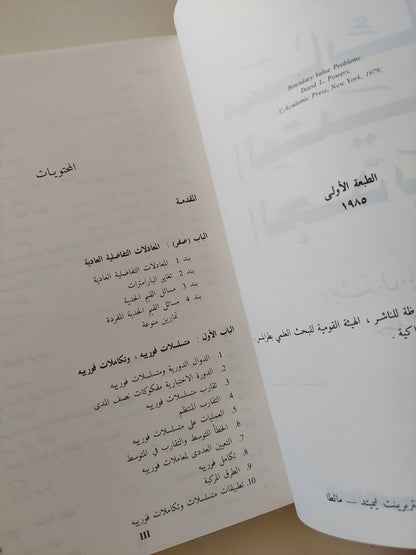 Boundary Value Problems
David L. Powers.
©Academic Press, New York, 1979.
الطبعة الأولى
١٩٨٥
للناشر ، الهيئة القومية للبحث العلمي
ليميتد — مالطا
المحتويات
المقدمة
الباب (صفر) : المعادلات التفاضلية العادية
بند 1 المعادلات التفاضلية العادية
بند 2 تغاير البارامترات
بند 3 مسائل القيم الحدية
بند 4 مسائل القيم الحدية المفردة
تمارين منوعة
الباب الأول : متسلسلات فورييه ، وتكاملات فورييه
1. الدوال الدورية ومتسلسلات فورييه
2. الدورة الاختيارية مفكوكات نصف المدى
3. تقارب متسلسلات فورييه
4. التقارب المنتظم
5. العمليات على متسلسلات فورييه
6. الخطأ المتوسط والتقارب في المتوسط
7. التعيين العددي لمعاملات فورييه
8. تكامل فورييه
9. الطرق المركبة
10. تطبيقات متسلسلات وتكاملات فورييه
III